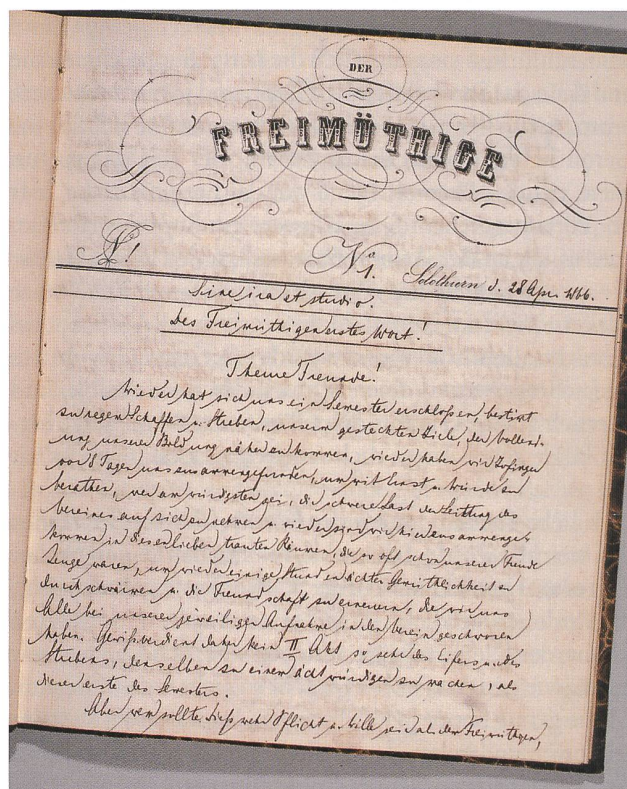 DER
FREIMÜTHIGE
N! No 1. Solothurn d. 28 Apr. 1866.
Sine ira et studio.
Des Freimüthigen erstes Wort!
Theure Freunde!
Wieder hat sich uns ein Semester erschloßen, bestimt
zu regem Schaffen u. Streben, unserm gesteckten Ziele, der Vollend-
ung unserer Bildung näher zu kommen, wieder haben wir Zofinger
vor 8 Tagen uns zusammengefunden, um mit Ernst u. Würde zu
berathen, wer am würdigsten sei, die schwere Last der Leitung des
Vereines auf sich zu nehmen u. wieder sind wir hier zusammenge-
kommen in diesen lieben trauten Räumen, die so oft schon unserer Freude
Zeuge waren, um wieder einige Stunden ächter Gemüthlichkeit zu
durchschwärmen u. die Freundschaft zu erneuern, die wir uns
Alle bei unserer jeweiligen Aufnahme in den Verein geschworen
haben. Gewiß verdient daher kein II Akt so sehr des Eifers u. des
Strebens, denselben zu einem ächt würdigen zu machen, als
dieser erste des Semesters.
Aber wem sollte dieß mehr Pflicht u. Wille sein als dem Freimüthigen,